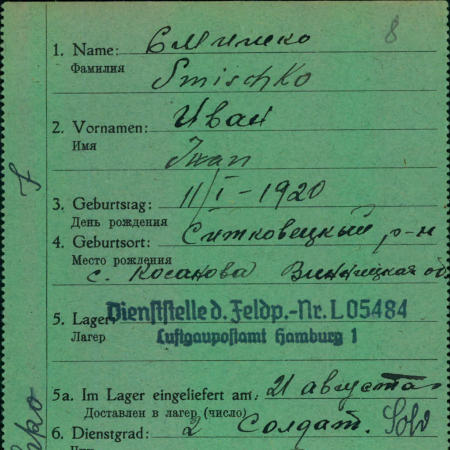 8
1. Name: Смишко
Фамилия
Smischko
2. Vornamen: Иван
Имя
Iwan
3. Geburtstag: 11/I-1920
День рождения
4. Geburtsort: Ситковецкий р-н
Место рождения
с. Косанова Винницкая об
5. Lager: Dienststelle d. Feldp.-Nr. L 05484
Лагер Luftgaupostamt Hamburg 1
5a. Im Lager eingeliefert am: 21 августа
Доставлен в лагер (число)
6. Dienstgrad: 2 Солдат. Sold